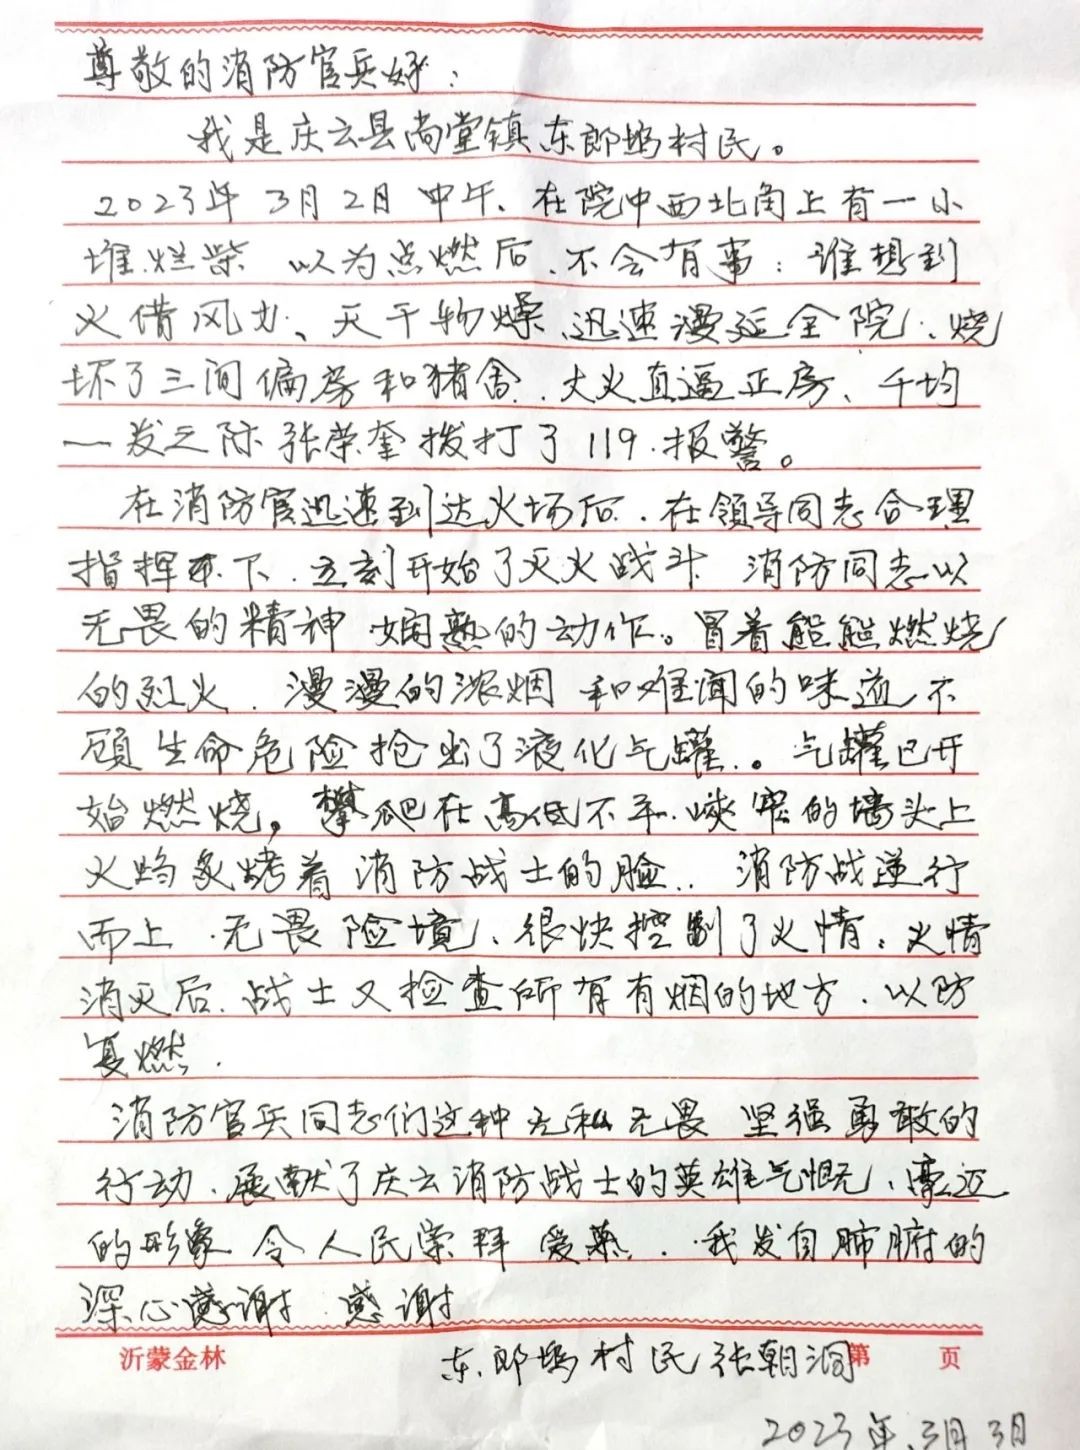 尊敬的消防官兵好：
我是庆云县尚堂镇东郎坞村民。
2023年 3月2日 中午、在院中西北角上有一小
堆烂柴 以为点燃后、不会有事：谁想到
火借风力、天干物燥、迅速漫延全院、烧
坏了三间偏房和猪舍、大火直逼正房、千均
一发之际 张荣奎拨打了119.报警。
在消防官迅速到达火场后、在领导同志合理
指挥下、立刻开始了灭火战斗 消防同志以
无畏的精神 娴熟的动作。冒着熊熊燃烧
的烈火、漫漫的浓烟 和难闻的味道 不
顾生命危险抢出了液化气罐..。气罐已开
始燃烧，攀爬在高低不平、窄的墙头上
火焰炙烤着消防战士的脸.. 消防战逆行
而上、无畏险境、很快控制了火情；火情
消灭后、战士又检查所有有烟的地方、以防
复燃.
消防官兵同志们这种无私无畏 坚强勇敢的
行动、展献了庆云消防战士的英雄气慨、豪迈
的形象 令人民崇拜 爱慕..我发自肺腑的
深心感谢 感谢
沂蒙金林 第 页
东郎坞村民张朝洞
2023年.3月3日